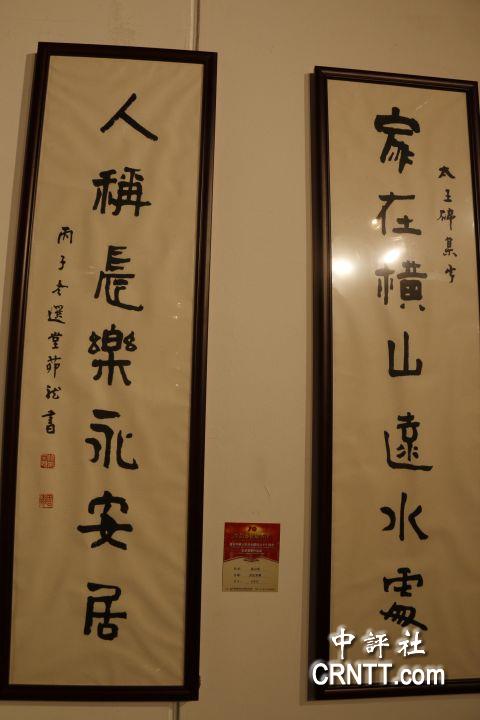 太王碑集字
家在橫山遠水處
人稱長樂永安居
丙子冬選堂茆龍書
中評社
CRNTT.com